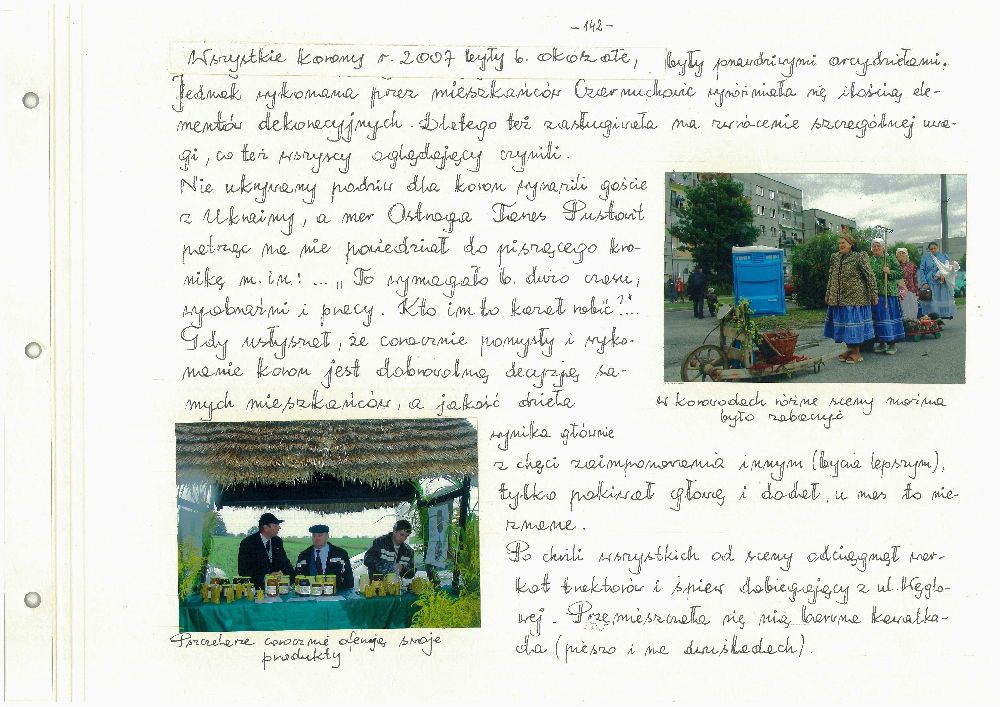 - 142 -
Wszystkie korony r. 2007 były b. okazałe, były prawdziwymi arcydziełami.
Jednak wykonana przez mieszkańców Czarnuchowic wyróżniała się ilością ele-
mentów dekoracyjnych. Dlatego też zasługiwała na zwrócenie szczególnej uwa-
gi, co też wszyscy oglądający czynili.
Nie ukrywany podziw dla koron wyrazili goście
z Ukrainy, a mer Ostroga Taras Pustovit
patrząc na nie powiedział do piszącego kro-
nikę m.in.: ... „To wymagało b. dużo czasu,
wyobraźni i pracy. Kto im to kazał robić?"...
Gdy usłyszał, że coroczne pomysły i wyko-
nanie koron jest dobrowolną decyzją sa-
mych mieszkańców, a jakość dzieła
w korowodach różne sceny można
było zobaczyć
wynika głównie
z chęci zaimponowania innym (bycia lepszym),
tylko pokiwał głową i dodał, u nas to nie-
znane.
Po chwili wszystkich od sceny odciągnął war-
kot traktorów i śpiew dobiegający z ul. Węglo-
wej. Przemieszczała się nią barwna kawalka-
da (pieszo i na dwuśladach).
Pszczelarze corocznie oferują swoje
produkty